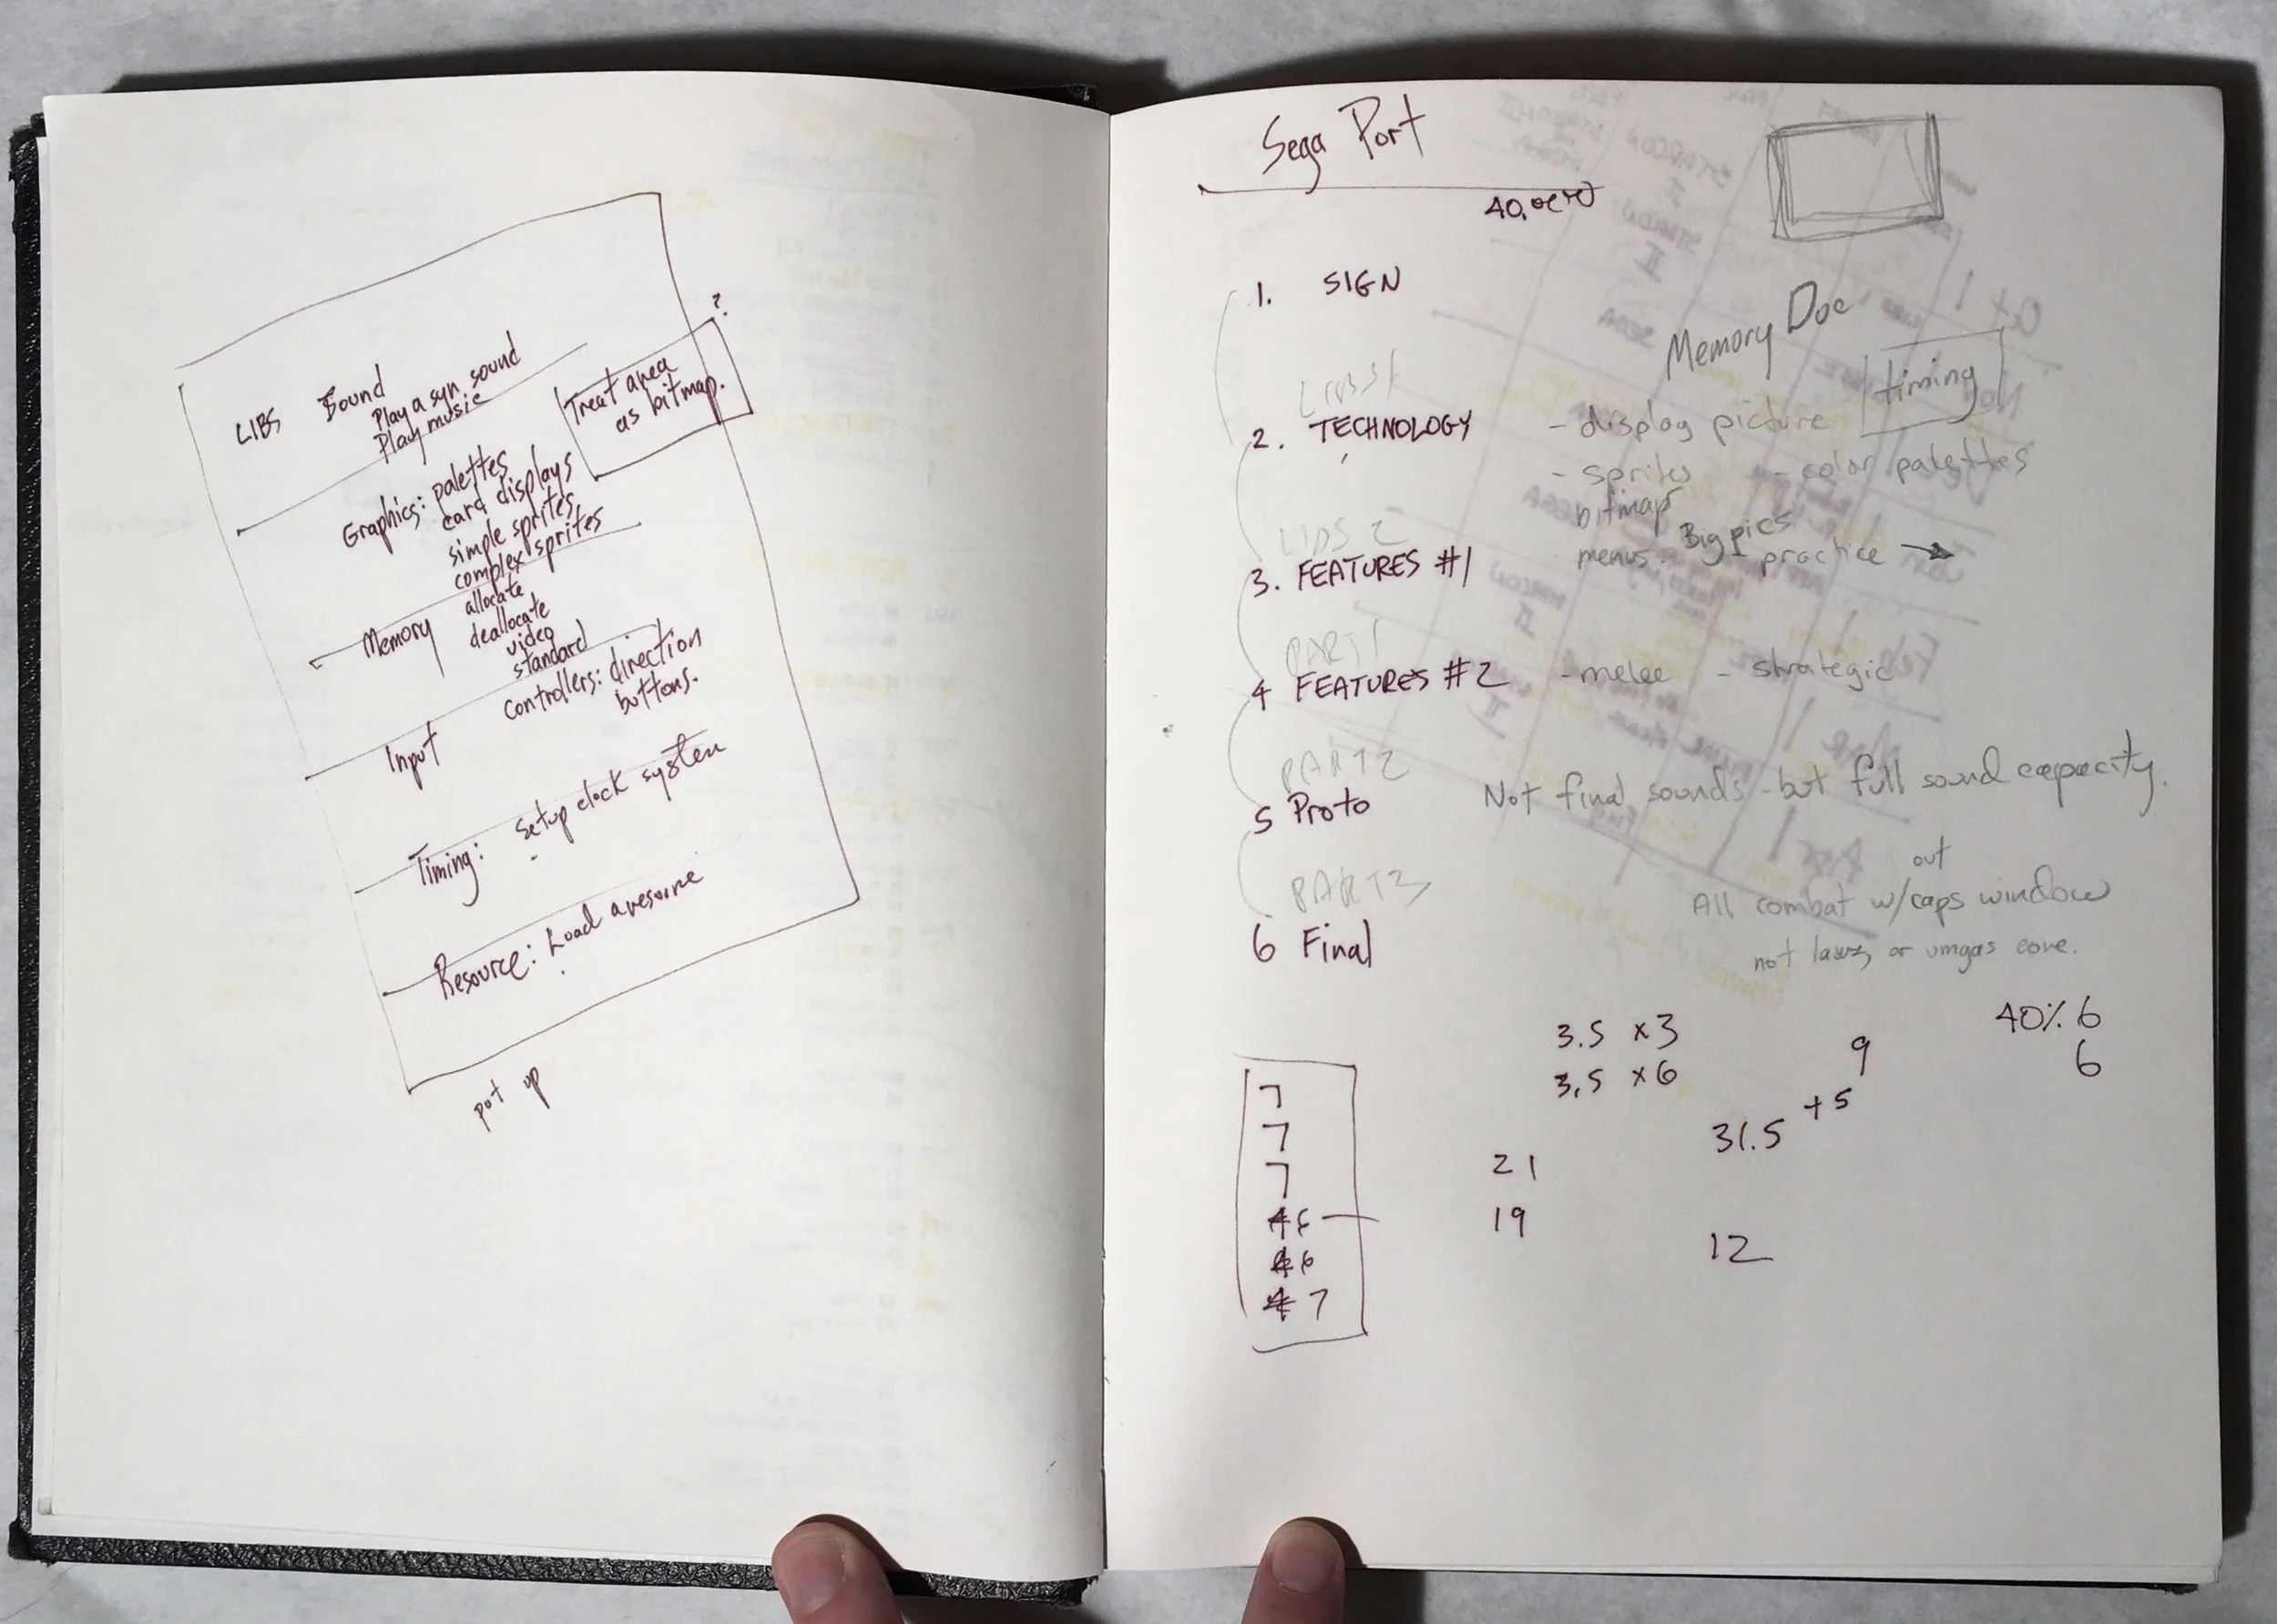 LIBS Sound
Play a syn. sound
Play music
?
Treat area
as bitmap.
Graphics: palettes
card displays
simple sprites
complex sprites
Memory allocate
deallocate
video
standard
Input controllers: direction
buttons.
Timing: Setup clock system
Resource: Load a resource
put up
Sega Port
40,000
1. SIGN
Memory Doc
timing
LIBS 1
2. TECHNOLOGY - display picture
- sprites - color palettes
bitmap
LIBS 2 Big pics
menus. practice →
3. FEATURES #1
PART 1
4 FEATURES #2 - melee - strategic
PART 2
5 Proto Not final sounds - but full sound capacity.
PART 3
out
All combat w/caps window
6 Final not laws, or
3.5 x3
3.5 x6
9
40% 6
6
31.5 +5
7
7
7
21
19
12
6
7